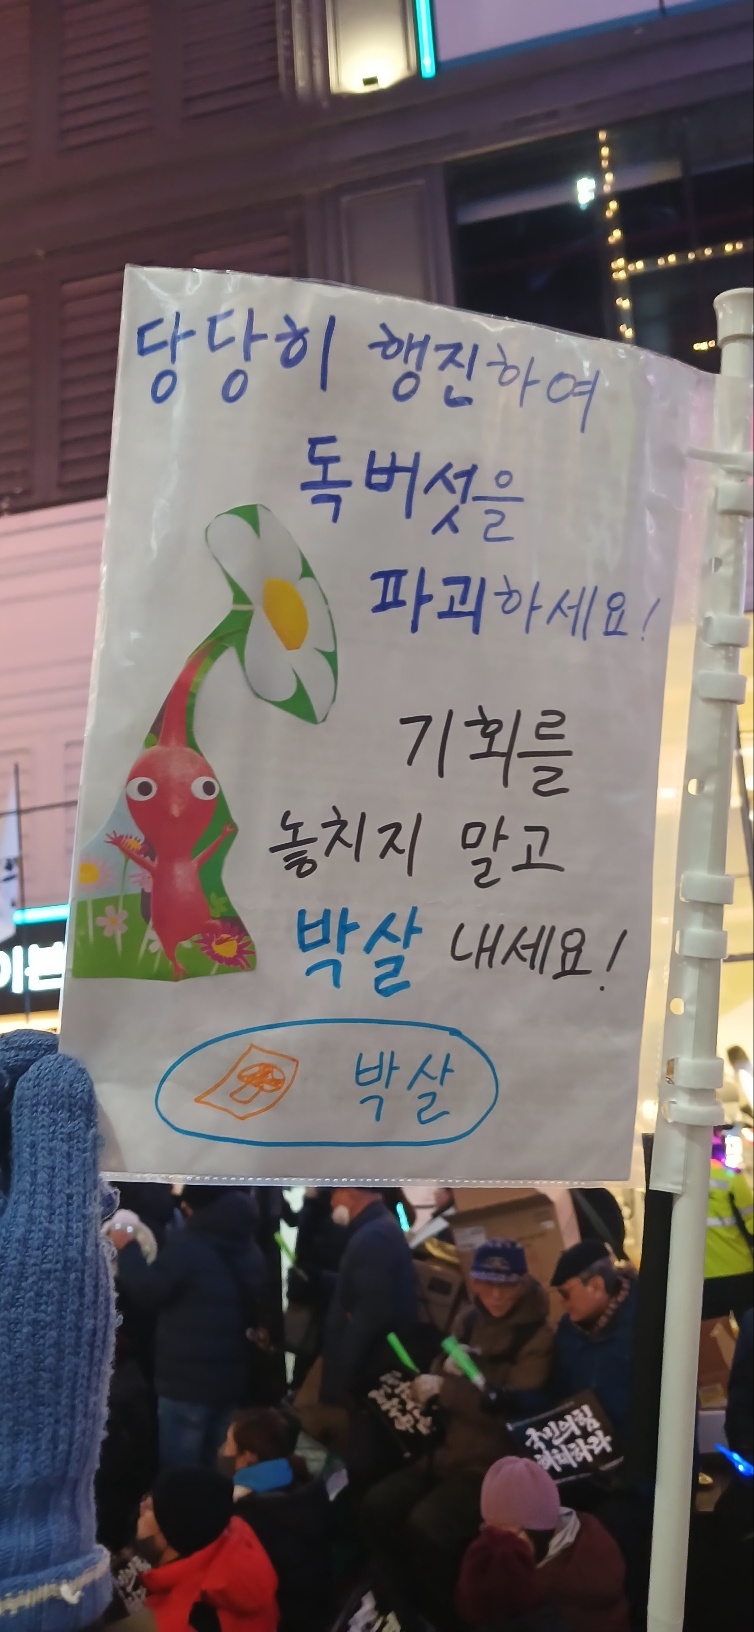 당당히 행진하여
독버섯을
파괴하세요!
기회를
놓치지 말고
박살 내세요!
박살
국민의힘
해체하라